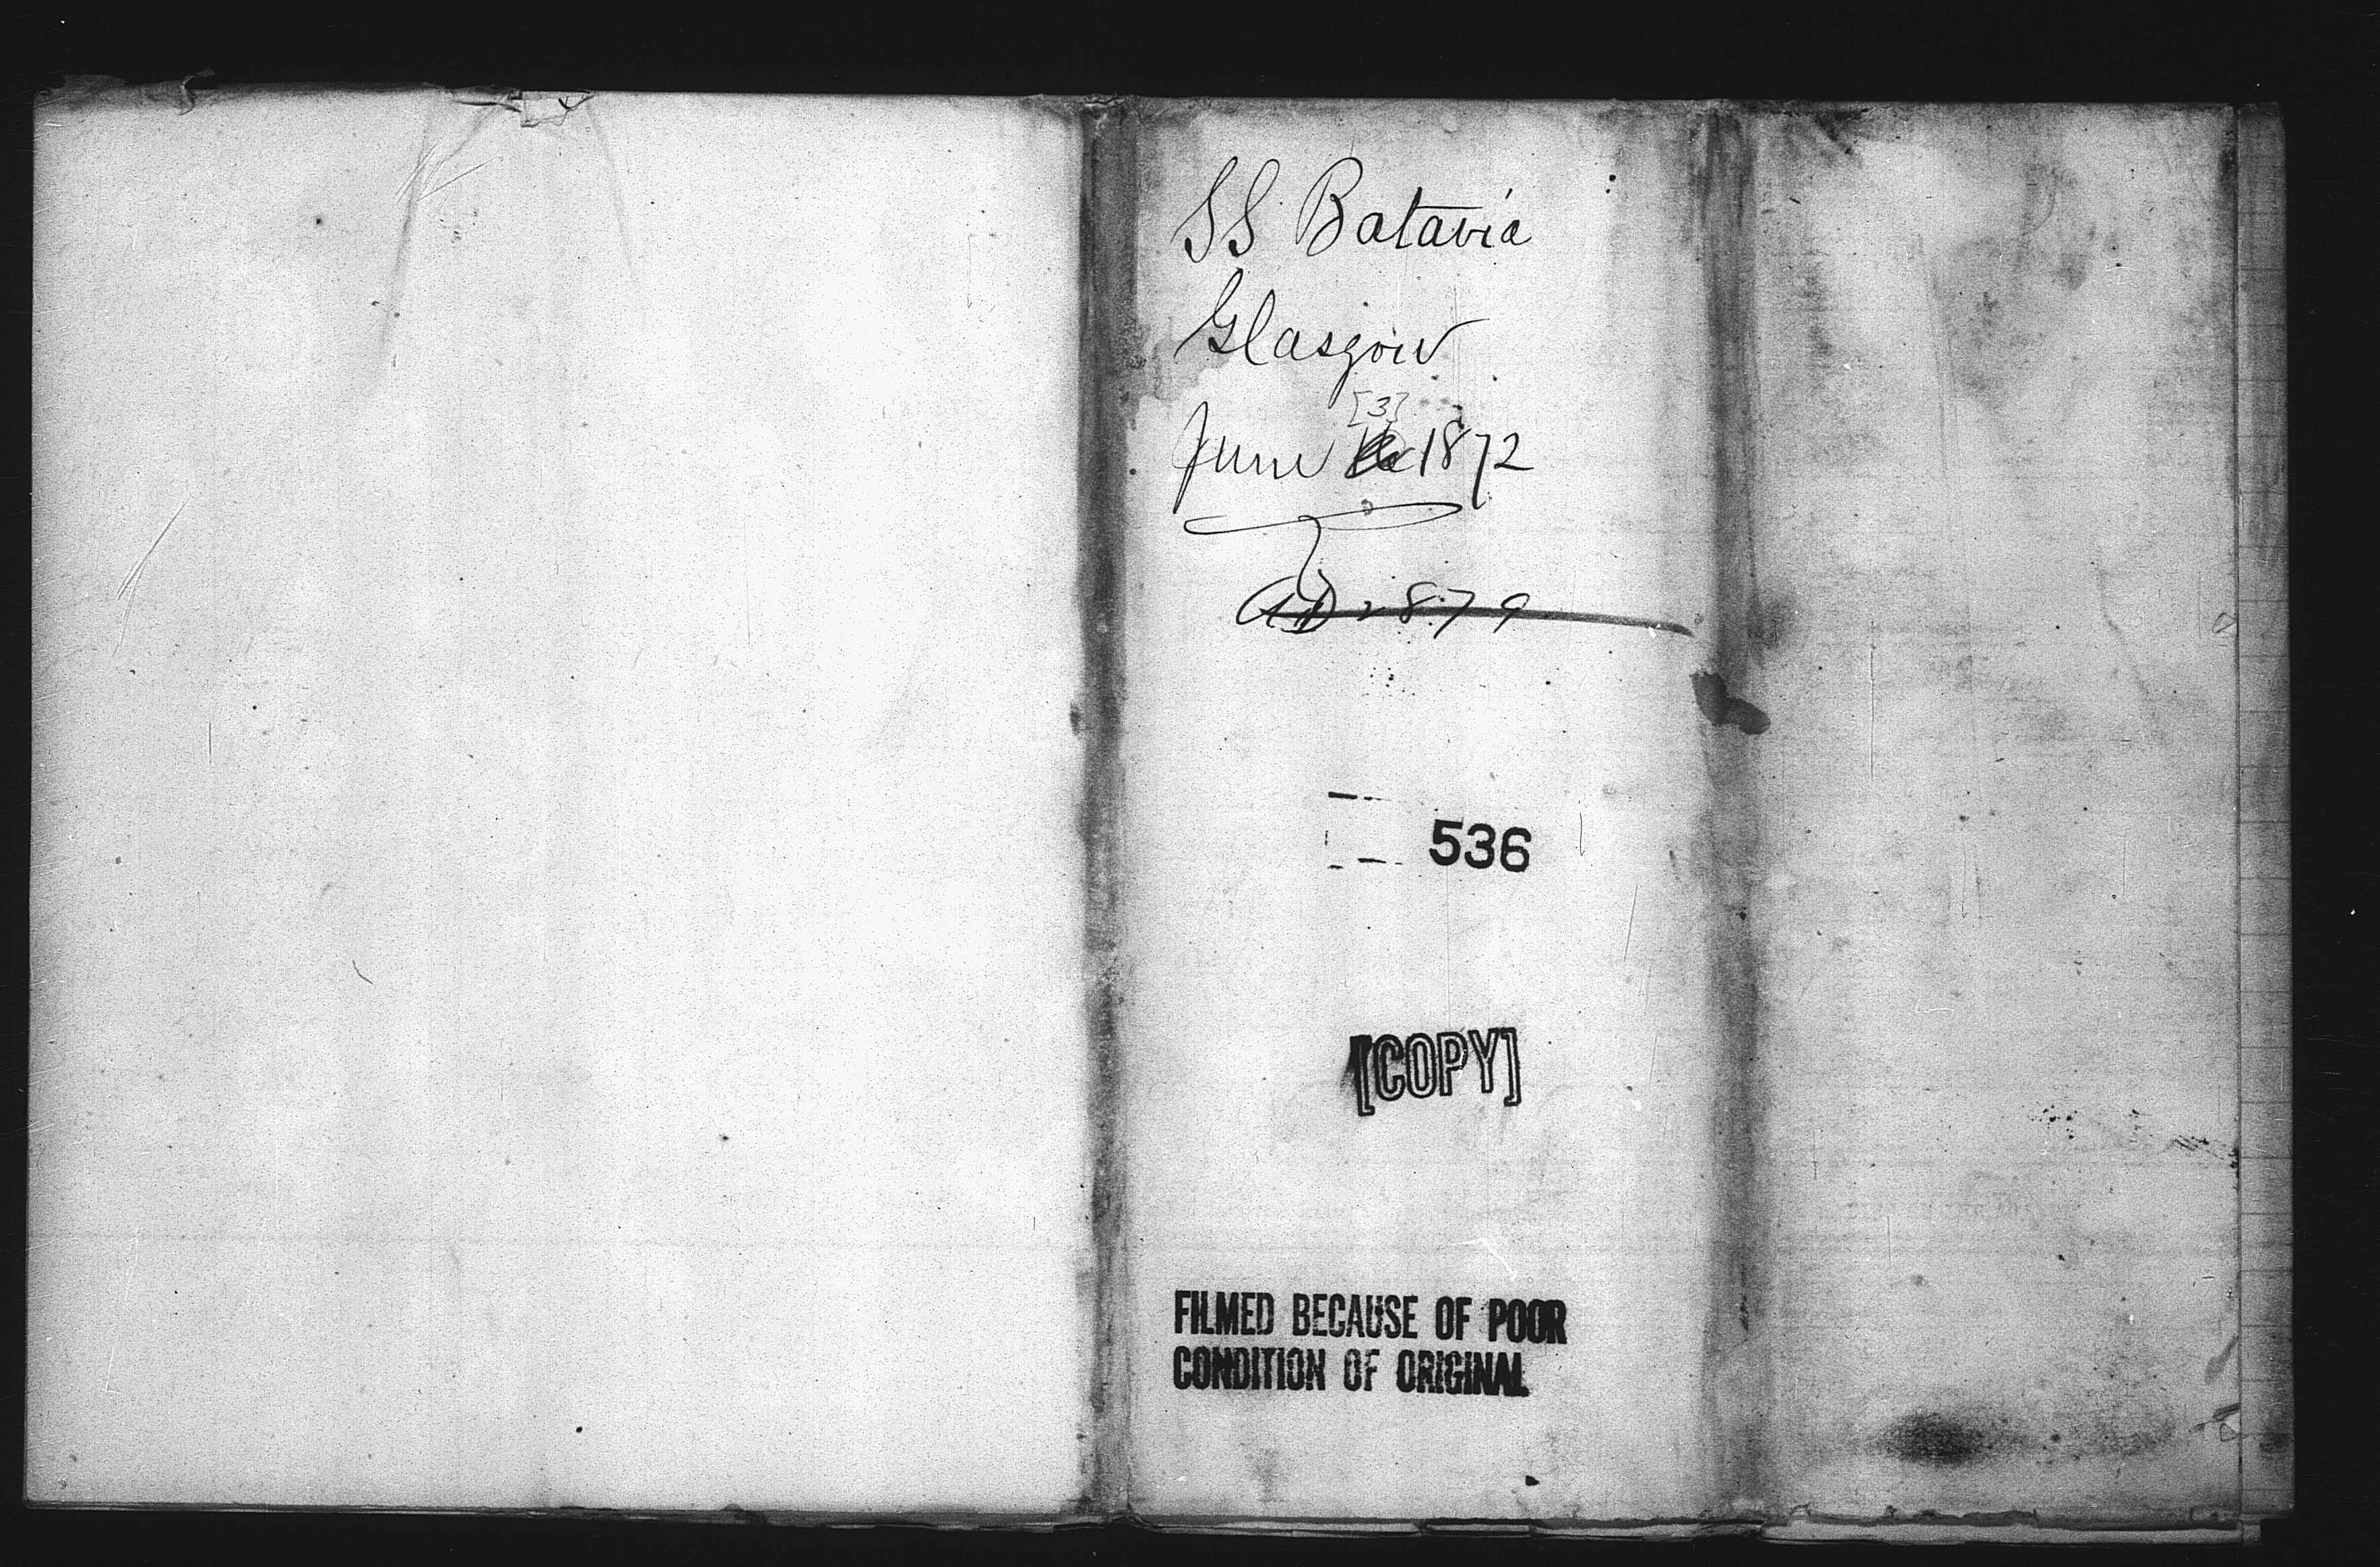 SS Batavia
Glasgow
[3]
June 1872
AD 1879
536
[COPY]
FILMED BECAUSE OF POOR
CONDITION OF ORIGINAL